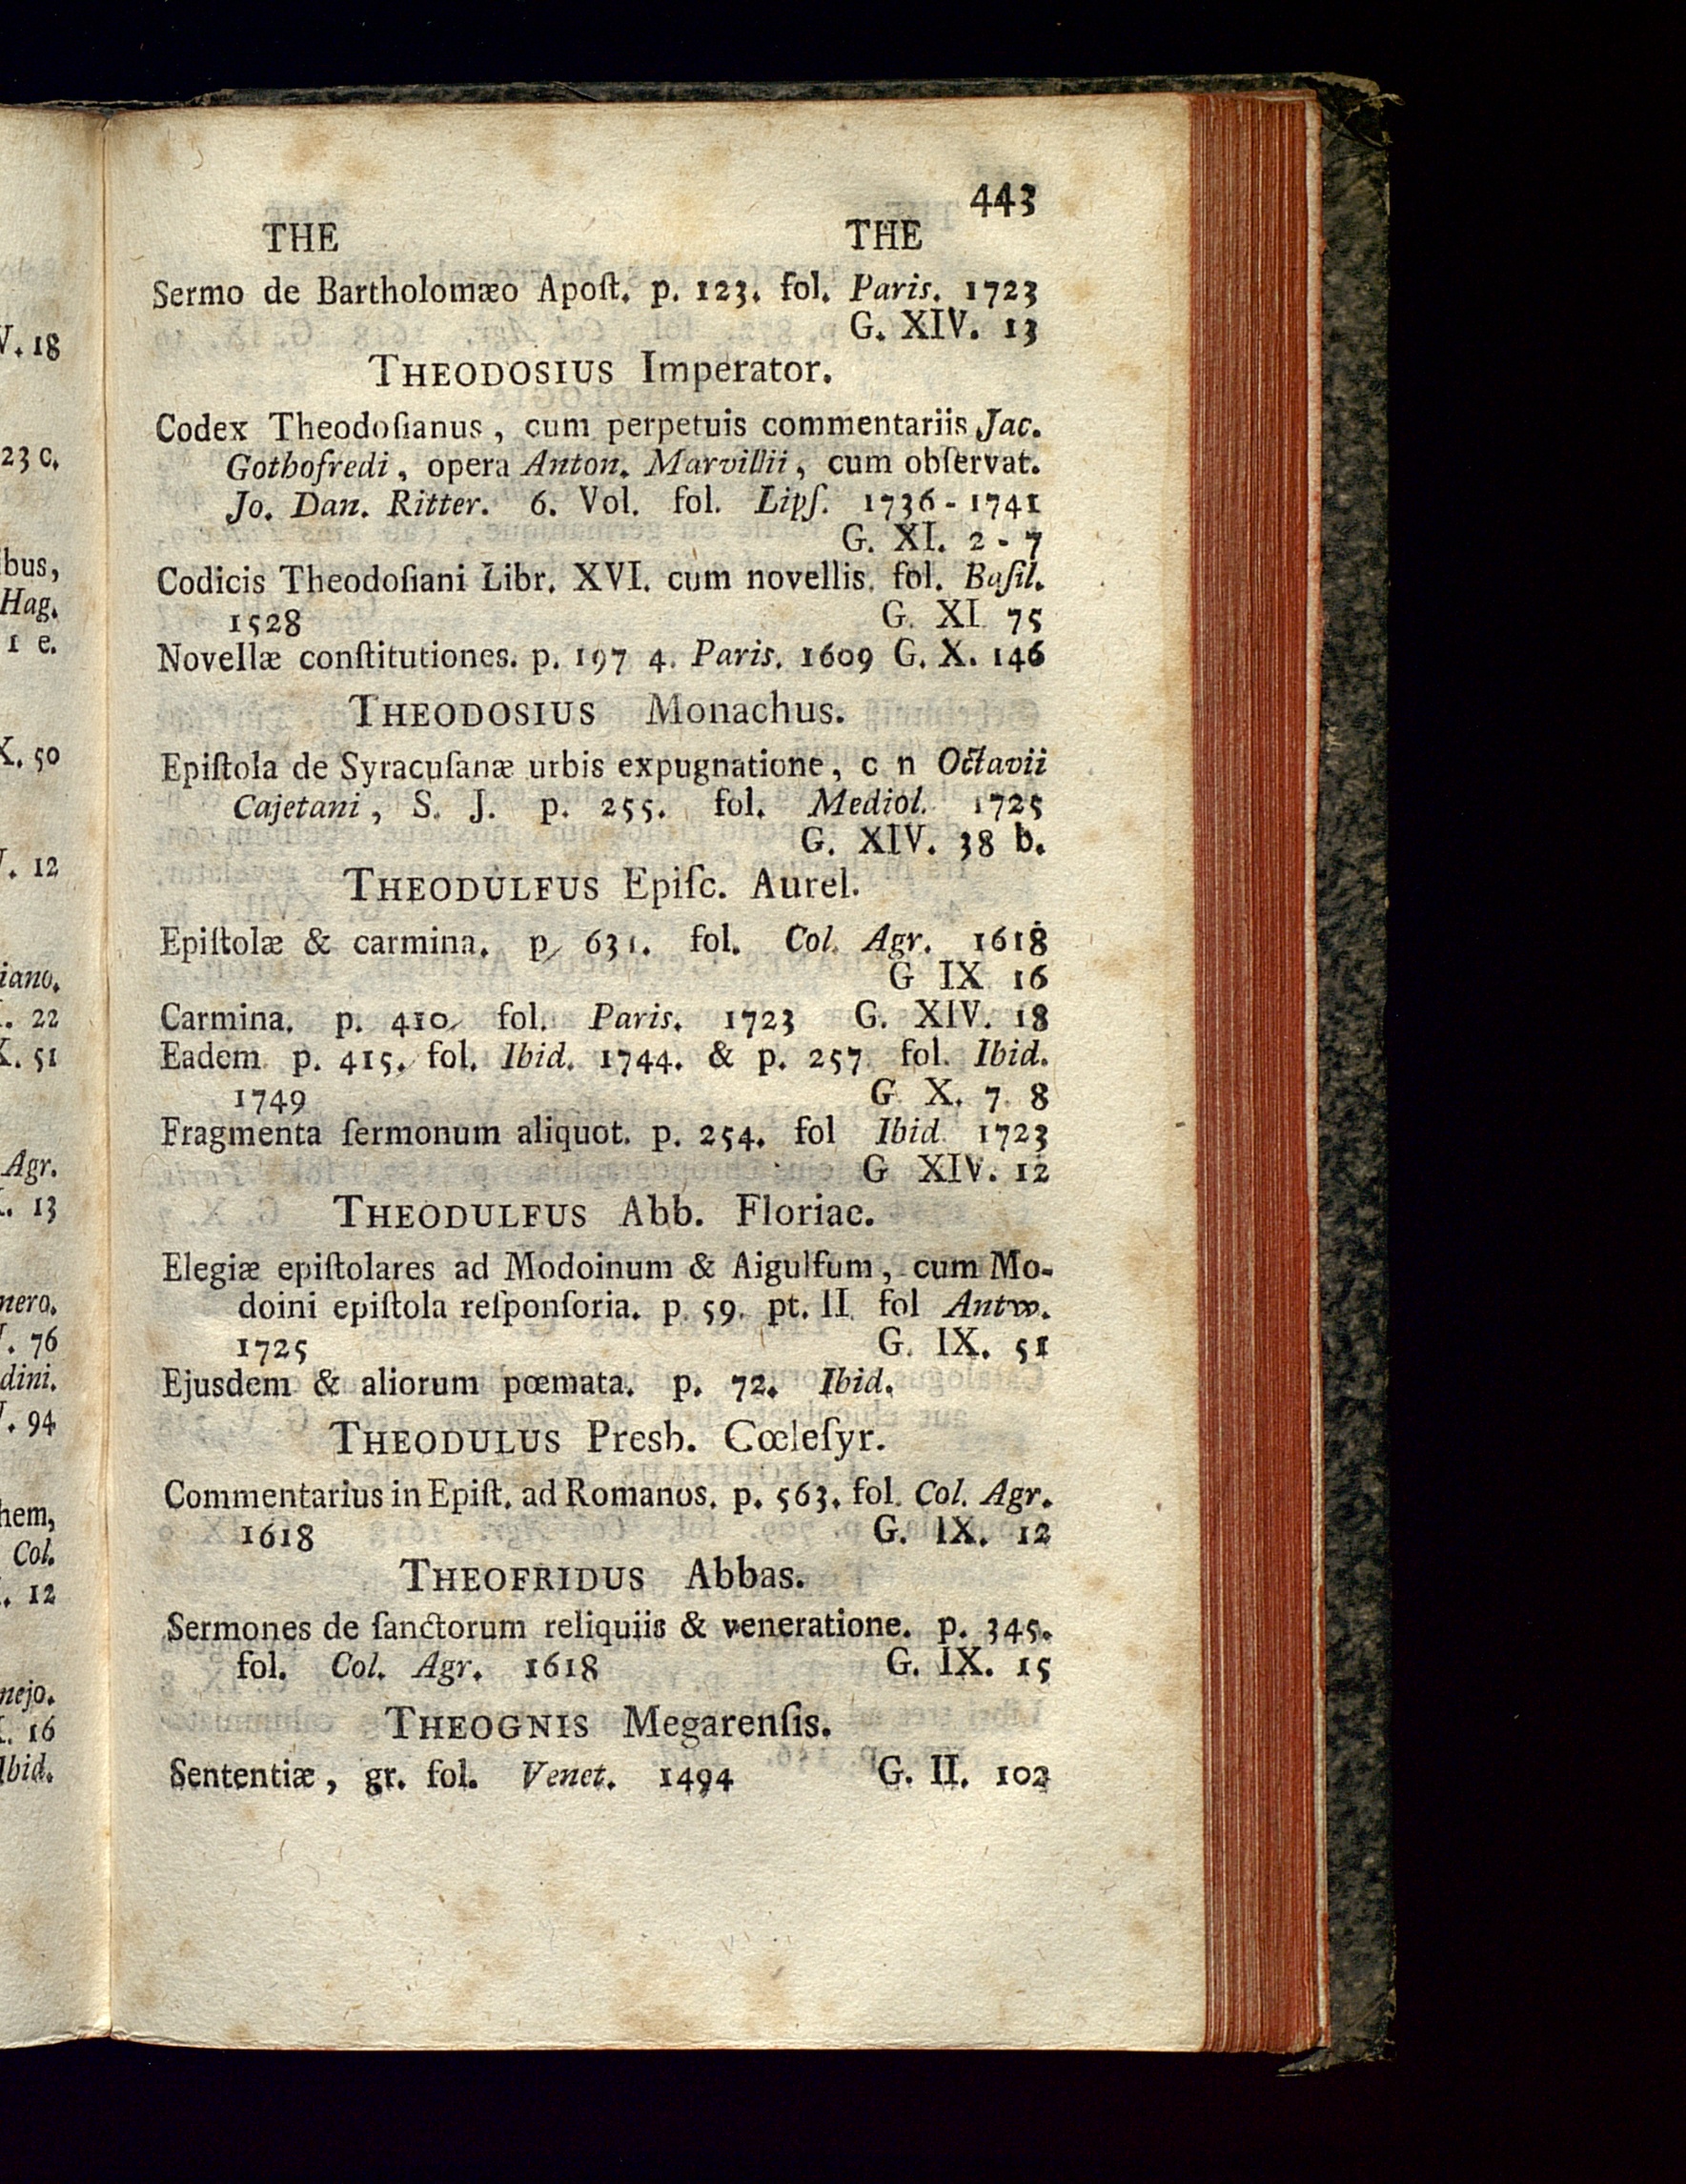 443
THE THE
Sermo de Bartholomæo Apoſt. p. 123. fol. Paris. 1723
G. XIV. 13
THEODOSIUS Imperator.
Codex Theodoſianus, cum perpetuis commentariis Jac.
Gothofredi, opera Anton. Marvillii, cum obſervat.
Jo. Dan. Ritter. 6. Vol. fol. Lipſ. 1736-1741
G. XI. 2-7
Codicis Theodoſiani Libr. XVI. cum novellis. fol. Baſil.
1528 G. XI 75
Novellæ conſtitutiones. p. 197 4. Paris. 1609 G. X. 146
THEODOSIUS Monachus.
Epiſtola de Syracuſanæ urbis expugnatione, c n Octavii
Cajetani, S. J. p. 255. fol. Mediol. 1725
G. XIV. 38 b.
THEODULFUS Epiſc. Aurel.
Epiſtolæ & carmina. p. 631. fol. Col. Agr. 1618
G IX 16
Carmina. p. 410. fol. Paris. 1723 G. XIV. 18
Eadem p. 415. fol. Ibid. 1744. & p. 257 fol. Ibid.
1749 G X. 7. 8
Fragmenta ſermonum aliquot. p. 254. fol Ibid 1723
G XIV. 12
THEODULFUS Abb. Floriac.
Elegiæ epiſtolares ad Modoinum & Aigulfum, cum Mo-
doini epiſtola reſponſoria. p. 59. pt. II fol Antw.
1725 G. IX. 51
Ejusdem & aliorum pœmata. p. 72. Ibid.
THEODULUS Presb. Cœleſyr.
Commentarius in Epiſt. ad Romanos. p. 563. fol. Col. Agr.
1618 G. IX. 12
THEOFRIDUS Abbas.
Sermones de ſanctorum reliquiis & veneratione. p. 345.
fol. Col. Agr. 1618 G. IX. 15
THEOGNIS Megarenſis.
Sententiæ, gr. fol. Venet. 1494 G. II. 102
V. 18
23 c.
bus,
Hag.
1 e.
X. 50
. 12
iano.
. 22
X. 51
Agr.
. 13
nero.
. 76
dini.
. 94
hem,
Col.
. 12
nejo.
. 16
Ibid.